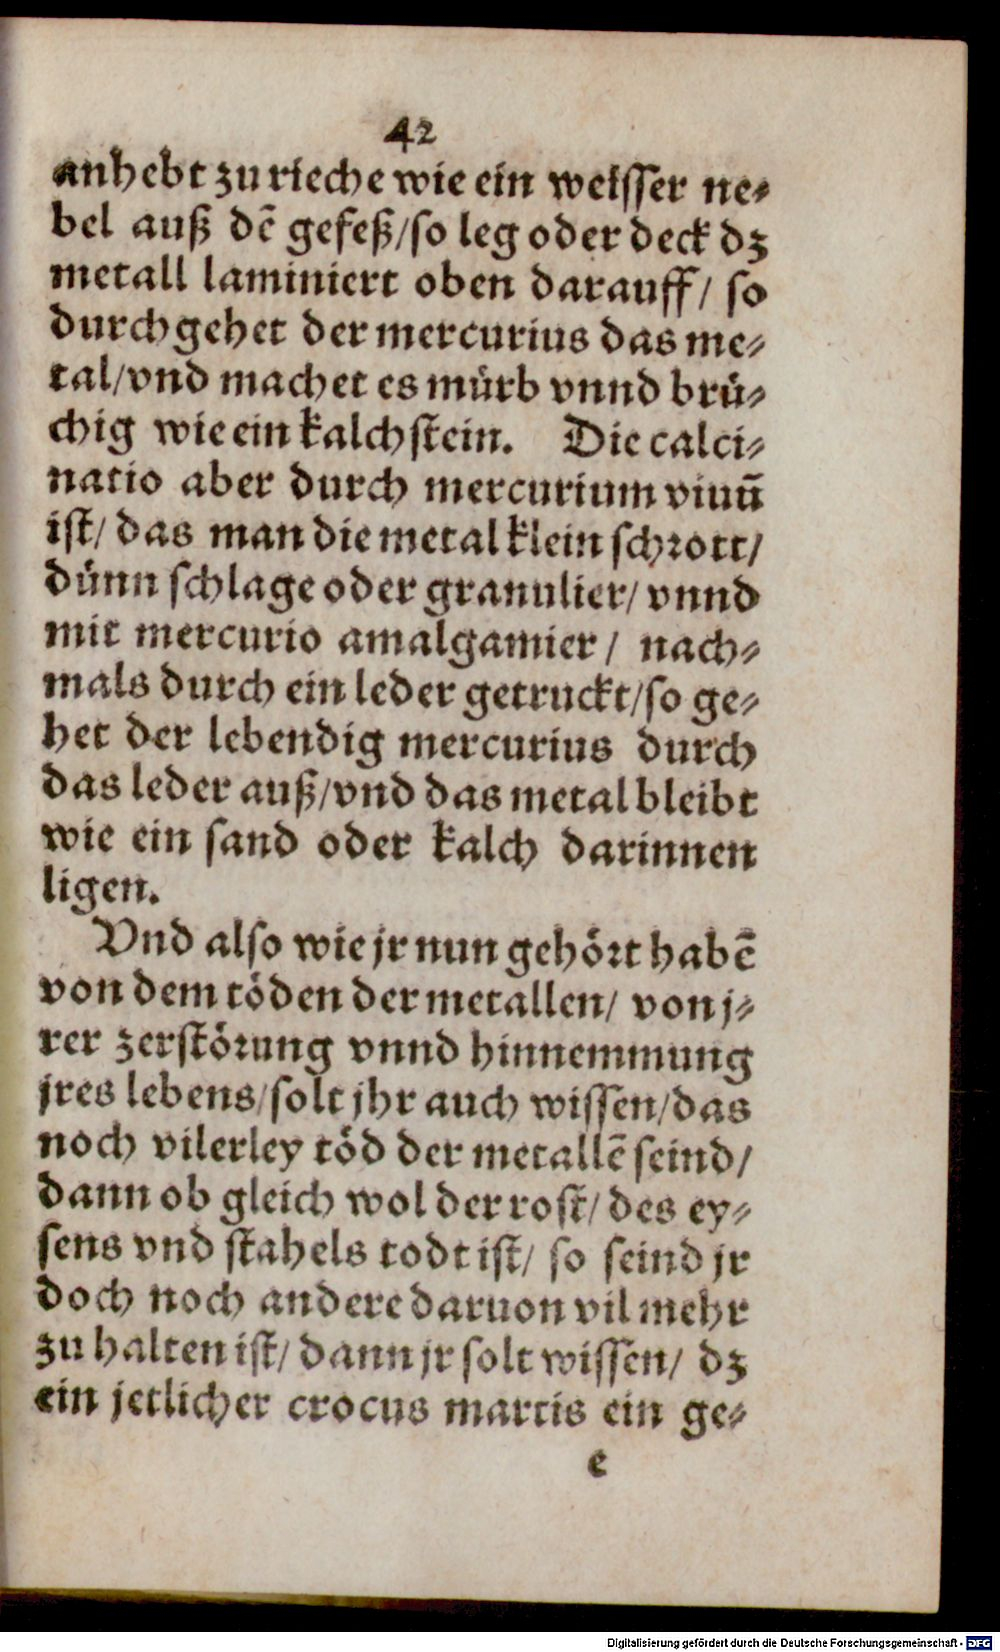 42
anhebt zu rieche wie ein weisser ne-
bel auß dē gefeß/so leg oder deck dz
metall laminiert oben darauff/ so
durchgehet der mercurius das me-
tal/vnd machet es mürb vnnd brü-
chig wie ein kalchstein. Die calci-
natio aber durch mercurium viuū
ist/ das man die metal klein schrott/
dünn schlage oder granulier/ vnnd
mit mercurio amalgamier/ nach-
mals durch ein leder getruckt/so ge-
het der lebendig mercurius durch
das leder auß/vnd das metal bleibt
wie ein sand oder kalch darinnen
ligen.
Vnd also wie jr nun gehört habē
von dem töden der metallen/ von j-
rer zerstörung vnnd hinnemmung
jres lebens/solt jhr auch wissen/das
noch vilerley töd der metallē seind/
dann ob gleich wol der rost/ des ey-
sens vnd stahels todt ist/ so seind jr
doch noch andere daruon vil mehr
zu halten ist/ dann jr solt wissen/ dz
ein jetlicher crocus martis ein ge-
e
Digitalisierung gefördert durch die Deutsche Forschungsgemeinschaft - DFG